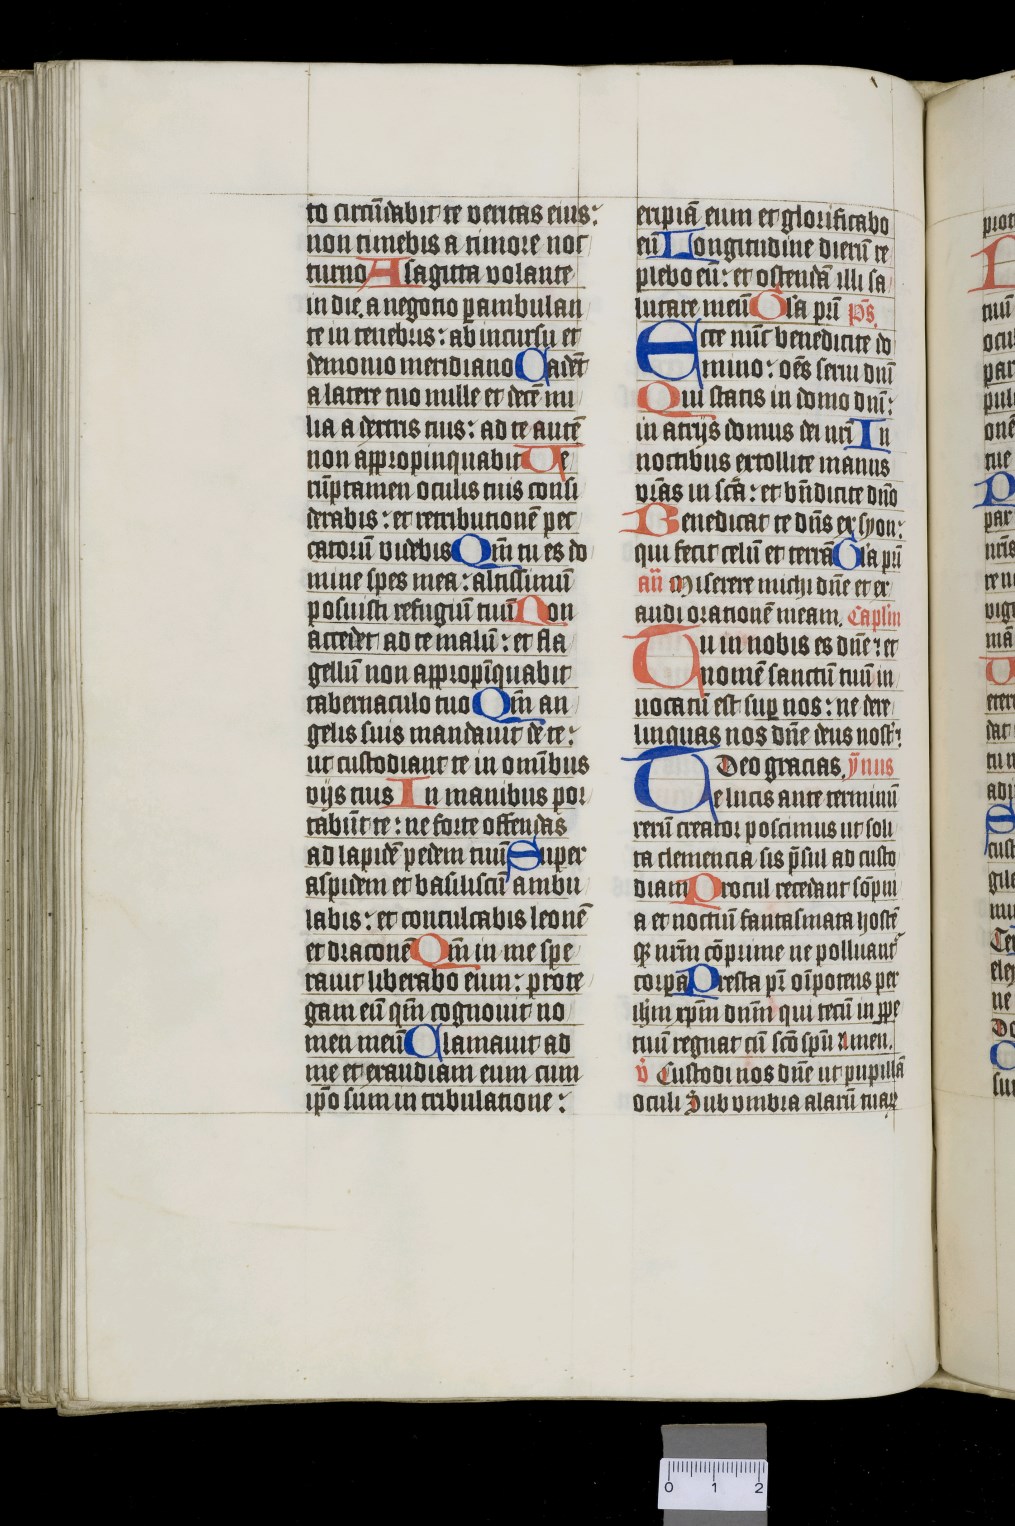 to circūdabit te veritas eius:
non timebis a timore noc
turno A sagitta volante
in die, a negotio pambulan
te in tenebris: ab incursu et
demonio meridiano Cadēt
a latere tuo mille et decē mi
lia a dextris tuis: ad te autē
non appropinquabit Ve
rūptamen oculis tuis consi
derabis: et retributionē pec
catorū videbis Qm̄ tu es do
mine spes mea: altissimū
posuisti refugiū tuū Non
accedet ad te malū: et fla
gellū non appropīquabit
tabernaculo tuo Qm̄ an
gelis suis mandauit de te:
ut custodiant te in omībus
vijs tuis In manibus por
tabūt te: ne forte offendas
ad lapidē pedem tuū Super
aspidem et basiliscū ambu
labis: et conculcabis leonē
et draconē Qm̄ in me spe
rauit liberabo eum: prote
gam eū qm̄ cognouit no
men meū Clamauit ad
me et exaudiam eum cum
ip̄o sum in tribulatione:
eripiā eum et glorificabo
eū Longitudine dierū re
plebo eū: et ostendā illi sa
lutare meū Gl̄a pr̄i p̄s.
Ecce nūc benedicite do
mino: oēs serui dn̄i
Qui statis in domo dn̄i:
in atrijs domus dei nr̄i In
noctibus extollite manus
vr̄as in sc̄a: et bn̄dicite dn̄o
Benedicat te dn̄s ex syon:
qui fecit celū et terrā Gl̄a pr̄i
an̄ Miserere michi dn̄e et ex
audi orationē meam. Caplm
Tu in nobis es dn̄e: et
nomē sanctū tuū in
uocatū est sup nos: ne dere
linquas nos dn̄e deus nost̄:
Deo gracias. ȳnus
Te lucis ante terminū
rerū creator poscimus ut soli
ta clemencia sis p̄sul ad custo
diam Procul recedant sōpni
a et noctiū fantasmata hostē
qꝫ nr̄m cōprime ne polluant̄
corpa Presta pr̄ oīpotens per
ihm xp̄m dnm̄ qui tecū in ppe
tuū regnat cū sc̄o spū Amen.
v̄ Custodi nos dn̄e ut pupillā
oculi Sub vmbra alarū tuaꝝ